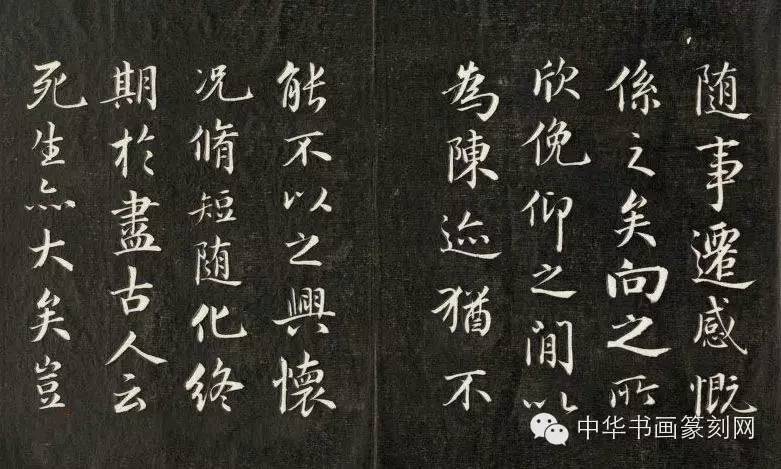 随事遷感慨
係之矣向之所
欣俛仰之閒以
為陳迹猶不
能不以之興懷
况脩短随化終
期於盡古人云
死生亦大矣豈
中华书画篆刻网